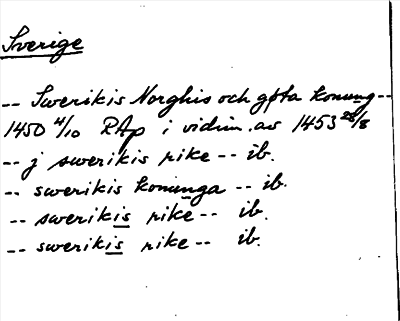 Sverige
-- Swerikis Norghis och gøta konung --
1450 4/10 RAp i vidim. av 1453 28/8
-- j swerikis rike -- ib.
-- swerikis konunga -- ib.
-- swerikis rike -- ib.
-- swerikis rike -- ib.